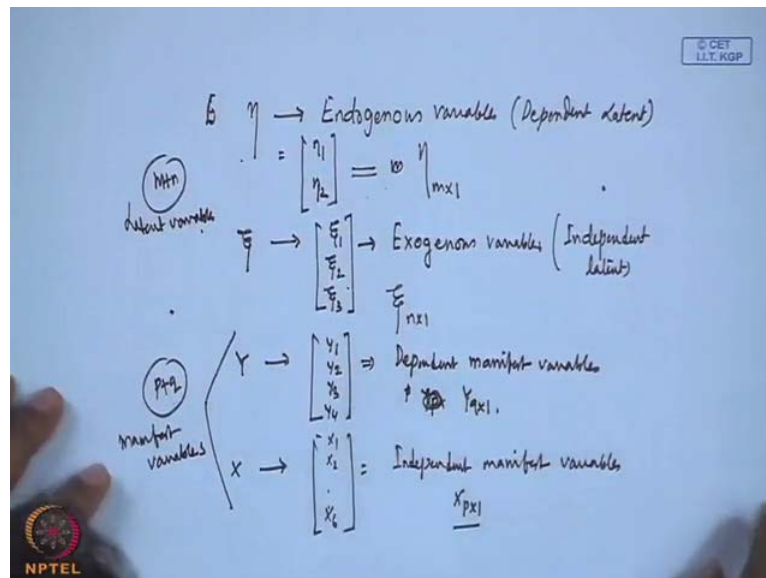 © CET
I.I.T. KGP
η → Endogenous variables (Dependent Latent)
= [η1 η2] = η m×1
m+n
Latent variables
ξ → [ξ1 ξ2 ξ3] → Exogenous variables (Independent latent)
ξ n×1
p+q
manifest variables
Y → [Y1 Y2 Y3 Y4] ⇒ Dependent manifest variables
Y q×1.
X → [X1 X2 . X6] = Independent manifest variables
X p×1
NPTEL